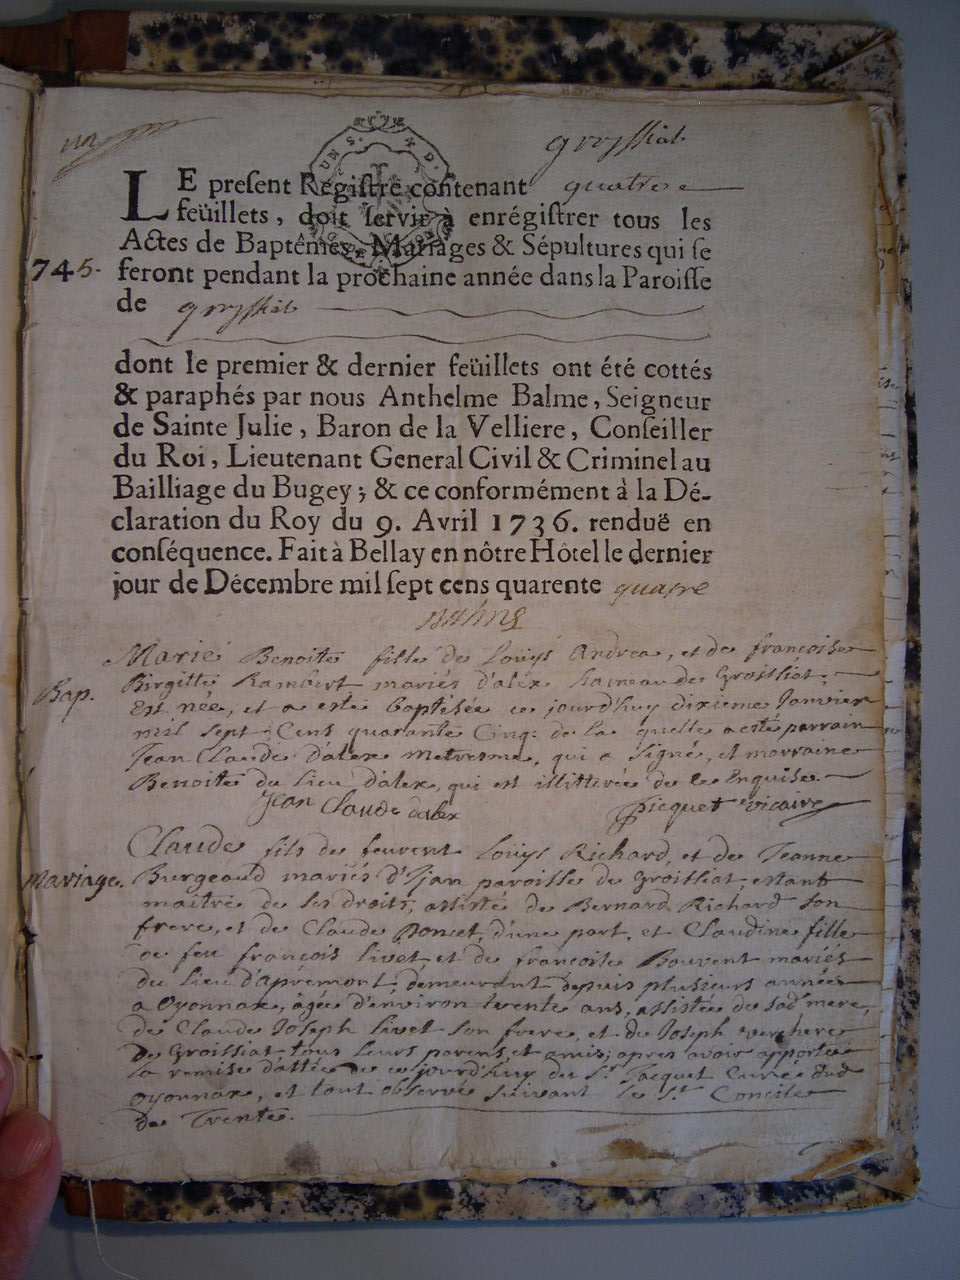 groissiat
LE present Registre contenant quatre
feüillets, doit servir à enrégistrer tous les
Actes de Baptêmes, Mariages & Sépultures qui se
745. feront pendant la prochaine année dans la Paroisse
de groissiat
dont le premier & dernier feüillets ont été cottés
& paraphés par nous Anthelme Balme, Seigneur
de Sainte Julie, Baron de la Velliere, Conseiller
du Roi, Lieutenant General Civil & Criminel au
Bailliage du Bugey; & ce conformément à la Dé-
claration du Roy du 9. Avril 1736. renduë en
conséquence. Fait à Bellay en nôtre Hôtel le dernier
jour de Décembre mil sept cens quarente quatre
Marie Benoite fille de Louÿs Andrea, et de françoise
Bap. Birgitte Rambert mariés d'alex hameau de Groissiat,
Est née, et a esté baptisée ce jourd'huy dixieme Janvier
mil sept Cens quarante Cinq. de la quelle a esté parrain
Jean Claude d'alex, qui a signé, et marraine
Benoite du lieu d'alex, qui est illitterée de Enquise
Jean Claude dalex Picquet vicaire
Claude fils de feurent Louÿs Richard, et de Jeanne
Mariage. Burgeaud mariés d'Ijan paroisse de Groissiat, estant
maitre de ses droits, assisté de Bernard Richard son
frere, et de Claude Poncet, d'une part, et Claudine fille
de feu françois livet et de françoise Bouvent mariés
du lieu d'apremont, demeurant depuis plusieurs années
a Oyonnax, âgée d'environ trente ans, assistée de sad. mere,
de Claude Joseph livet son frere, et de Joseph verchere
de Groissiat, tous leurs parens, et amis, apres avoir apporté
la remise dattée de ce jourd'huy du Sr. Jacquet Curé dud.
oyonnax, et tout observé suivant le St. Concile
de Trente.